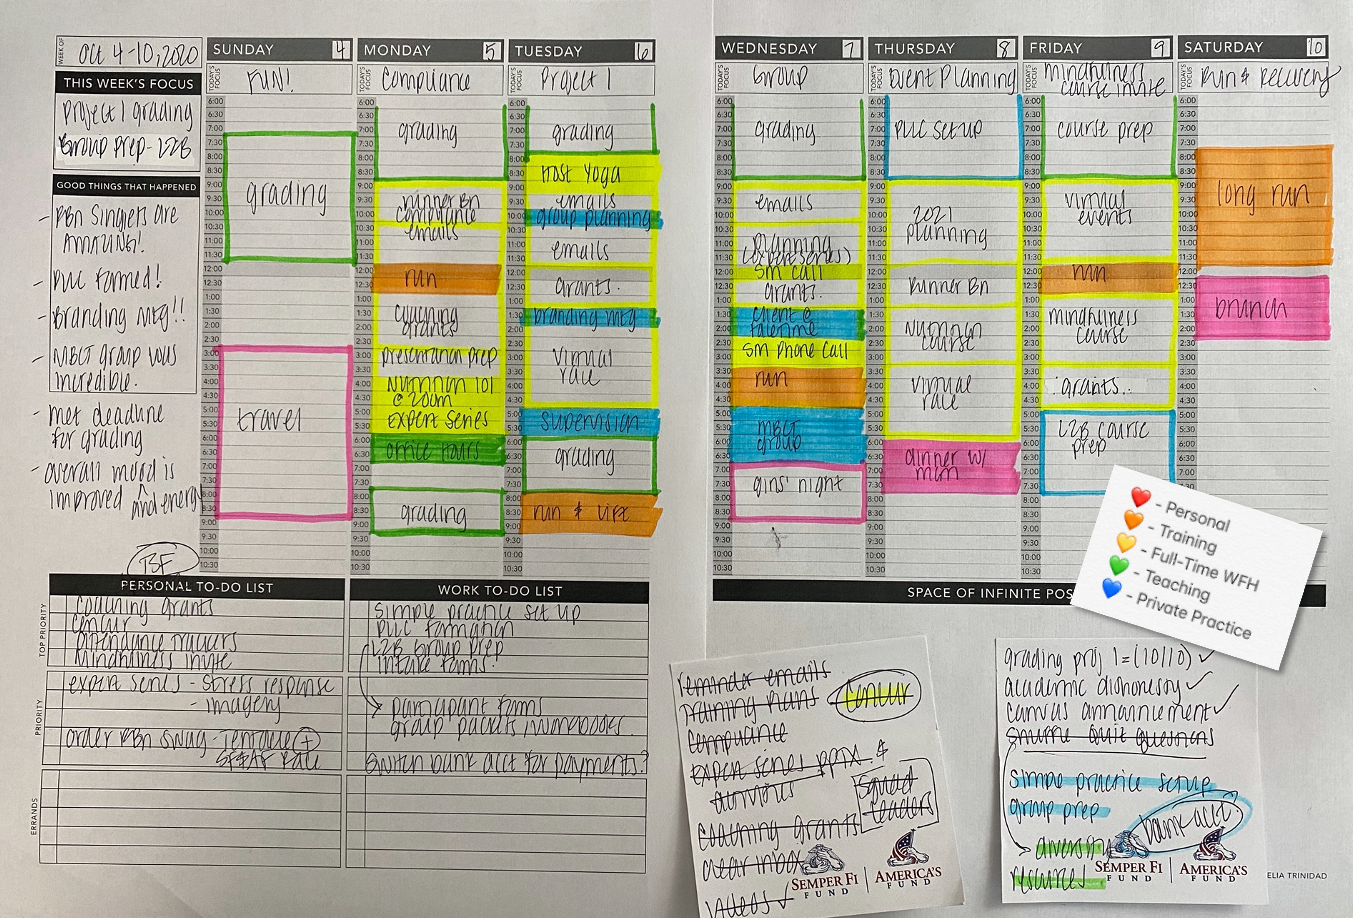 WEEK OF
Oct 4-10, 2020
THIS WEEK'S FOCUS
Project 1 grading
Group Prep - L2B
GOOD THINGS THAT HAPPENED
- RBn Singlets are
AMAZING!
- PLLC formed!
- Branding mtg!!
- MBCT group was
incredible.
- met deadline
for grading
- overall mood is
improved and energy
TSF
SUNDAY 4
TODAY'S FOCUS
FUN!
grading
travel
MONDAY 5
TODAY'S FOCUS
Compliance
grading
runner Bn
compliance
emails
run
coaching
grants
presentation prep
Nutrition 101
@ 200m
expert series
office hours
grading
TUESDAY 6
TODAY'S FOCUS
Project 1
grading
Host Yoga
emails
group planning
emails
grants.
branding mtg
virtual
race
supervision
grading
run & lift
WEDNESDAY 7
TODAY'S FOCUS
Group
grading
emails
planning
(expert series)
SM call
grants.
client @
SM Phone Call
run
MBCT
group
girls' night
THURSDAY 8
TODAY'S FOCUS
Event Planning
PLLC set up
2021
planning
Runner Bn
Nutrition
course
virtual
race
dinner w/
mom
FRIDAY 9
TODAY'S FOCUS
mindfulness
course invite
course prep
virtual
events
run
mindfulness
course
grants..
L2B course
prep
SATURDAY 10
TODAY'S FOCUS
Run & Recovery
long run
brunch
PERSONAL TO-DO LIST
TOP PRIORITY
coaching grants
concur
attendance trackers
Mindfulness invite
PRIORITY
expert series - stress response
- imagery
order RBn swag - tentacle +
SF&AF Race
ERRANDS
WORK TO-DO LIST
simple practice set up
PLLC formation
L2B Group Prep
intake forms!
participant forms
group packets/workbooks.
switch bank acct for payments?
SPACE OF INFINITE POS
❤️ - Personal
🧡 - Training
💛 - Full-Time WFH
💚 - Teaching
💙 - Private Practice
reminder emails
training plans
concur
compliance
expert series pptx &
activities
squad
leaders
coaching grants
clear inbox
videos ✓
SEMPER FI
FUND
AMERICA'S
FUND
grading proj 1 = (10/10) ✓
academic dishonesty ✓
canvas announcement ✓
shuffle quiz questions
simple practice setup
group prep
bank acct?
diversity
resources
SEMPER FI
FUND
AMERICA'S
FUND
ELIA TRINIDAD